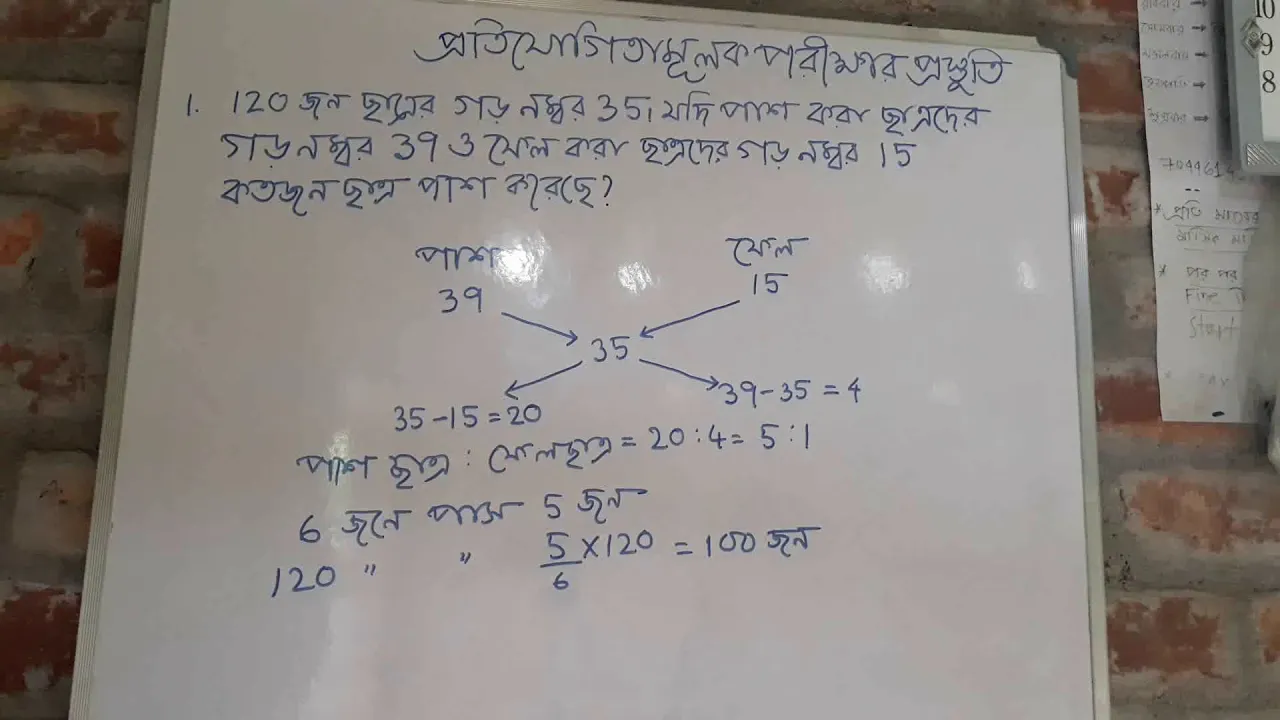 প্রতিযোগিতামূলক পরীক্ষার প্রস্তুতি
1. 120 জন ছাত্রের গড় নম্বর 35। যদি পাশ করা ছাত্রদের
গড় নম্বর 39 ও ফেল করা ছাত্রদের গড় নম্বর 15
কতজন ছাত্র পাশ করেছে?
পাশ ফেল
39 15
35
35-15=20 39-35=4
পাশ ছাত্র : ফেল ছাত্র = 20:4= 5:1
6 জনে পাস 5 জন
120 " " 5/6 ×120 = 100 জন
10
9
8
* প্রতি
* পর পর
Fine
Start